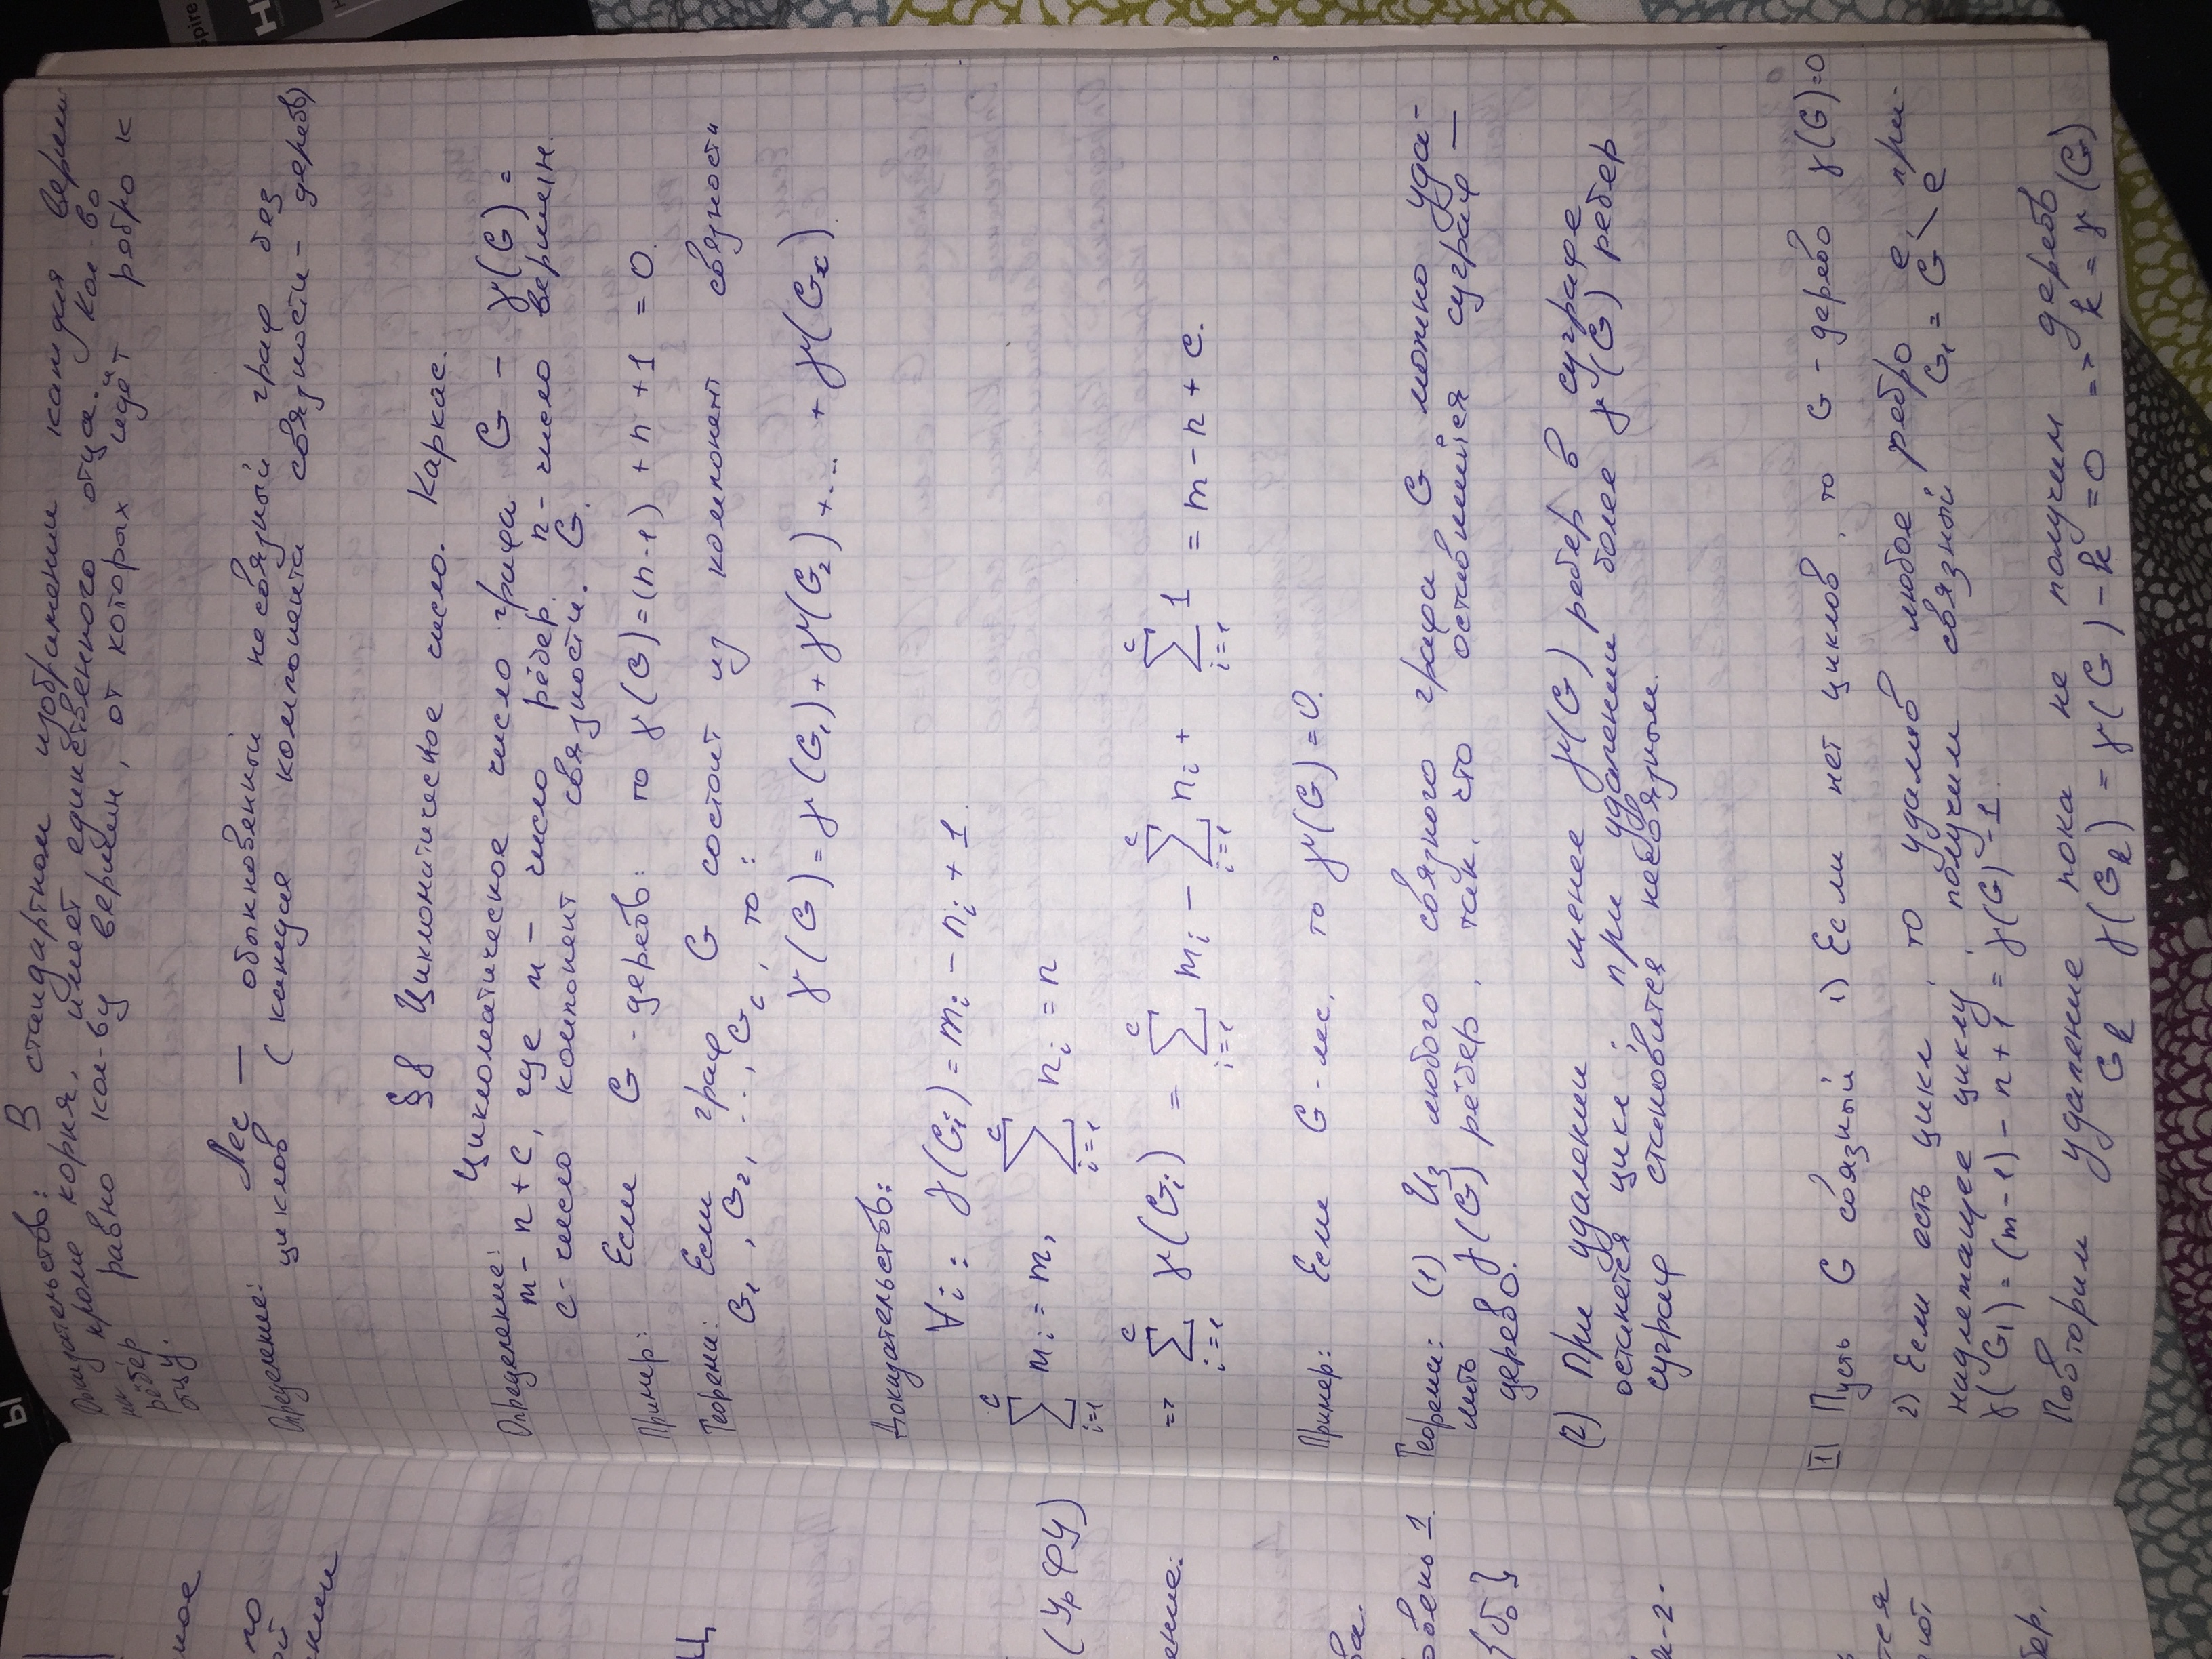 Доказательство: В стандартном изображении каждая верши-
на кроме корня, имеет единственного отца. Кол-во
рёбер равно кол-ву вершин, от которых идёт ребро к
отцу.
Определение: Лес — обыкновенный несвязный граф без
циклов (каждая компонента связности - дерево)
§8 Цикломатическое число. Каркас.
Определение: Цикломатическое число графа G - γ(G) =
m - n + c, где m - число рёбер, n - число вершин,
c - число компонент связности. G.
Пример: Если G - дерево: то γ(G) = (n-1) + n + 1 = 0.
Теорема: Если граф G состоит из компонент связности
G₁, G₂, ..., G_c, то:
γ(G) = γ(G₁) + γ(G₂) + ... + γ(G_c).
Доказательство:
∀i: γ(G_i) = m_i - n_i + 1.
∑_{i=1}^{c} m_i = m, ∑_{i=1}^{c} n_i = n
=> ∑_{i=1}^{c} γ(G_i) = ∑_{i=1}^{c} m_i - ∑_{i=1}^{c} n_i + ∑_{i=1}^{c} 1 = m - n + c.
Пример: Если G - лес, то γ(G) = 0.
Теорема: (1) Из любого связного графа G можно уда-
лить γ(G) рёбер, так, что оставшийся суграф —
дерево.
(2) При удалении менее γ(G) ребер в суграфе
останется цикл; при удалении более γ(G) ребер
суграф становится несвязным.
I) Пусть G связный 1) Если нет циклов, то G - дерево γ(G)=0
2) Если есть цикл, то удалив любое ребро e, при-
надлежащее циклу, получим связный G₁ = G \ e
γ(G₁) = (m-1) - n + 1 = γ(G) - 1.
Повторим удаление пока не получим дерево
G_k γ(G_k) = γ(G) - k = 0 => k = γ(G)
ное
по
ой
нии
Ц
(УрФУ)
ение:
ва.
овень 1.
{б₀}
а-2.
тся
ют
бер.
Ы
spire